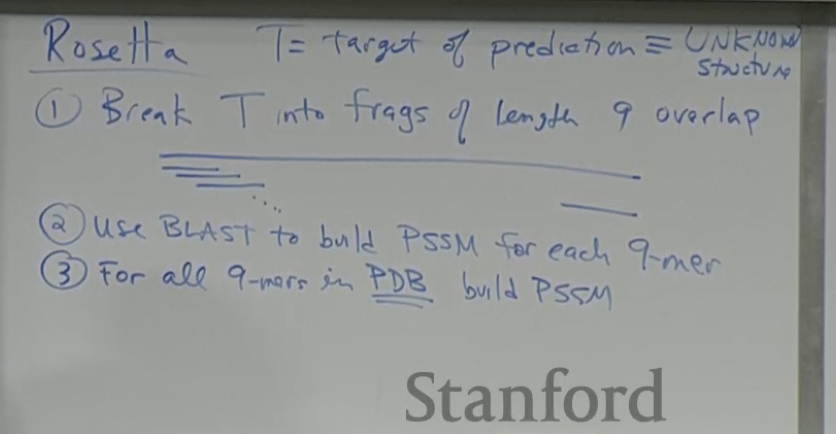 Rosetta T = target of prediction ≡ UNKNOWN
structure
① Break T into frags of length 9 overlap
② Use BLAST to build PSSM for each 9-mer
③ For all 9-mers in PDB build PSSM
Stanford